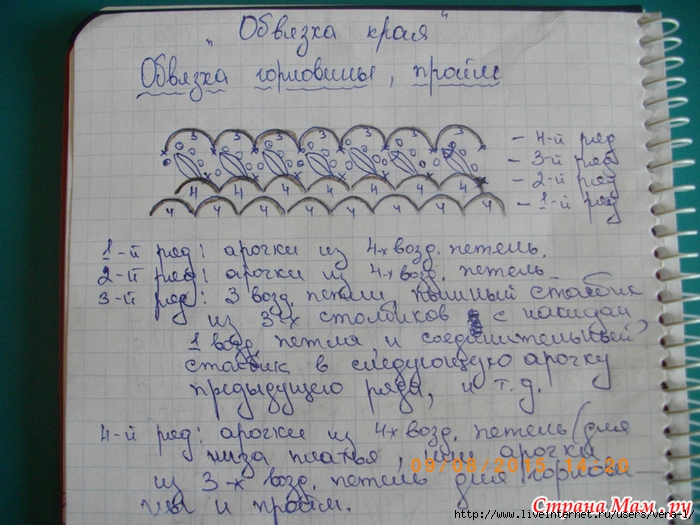 "Обвязка края"
Обвязка горловины, пройм
3 3 3 3 3 3 3
4 4 4 4 4 4 4
4 4 4 4 4 4 4 4
- 4-й ряд
- 3-й ряд
- 2-й ряд
- 1-й ряд
1-й ряд: арочки из 4-х возд. петель.
2-й ряд: арочки из 4-х возд. петель
3-й ряд: 3 возд. петли, пышный столбик
из 3-х столбиков с накидом
1 возд. петля и соединительный
столбик в следующую арочку
предыдущего ряда, и т.д.
4-й ряд: арочки из 4-х возд. петель (для
низа платья, или арочки
из 3-х возд. петель для горлови-
ны и пройм.
09/06/2015 14:20
Страна Мам.ру
http://www.liveinternet.ru/users/vera-l/